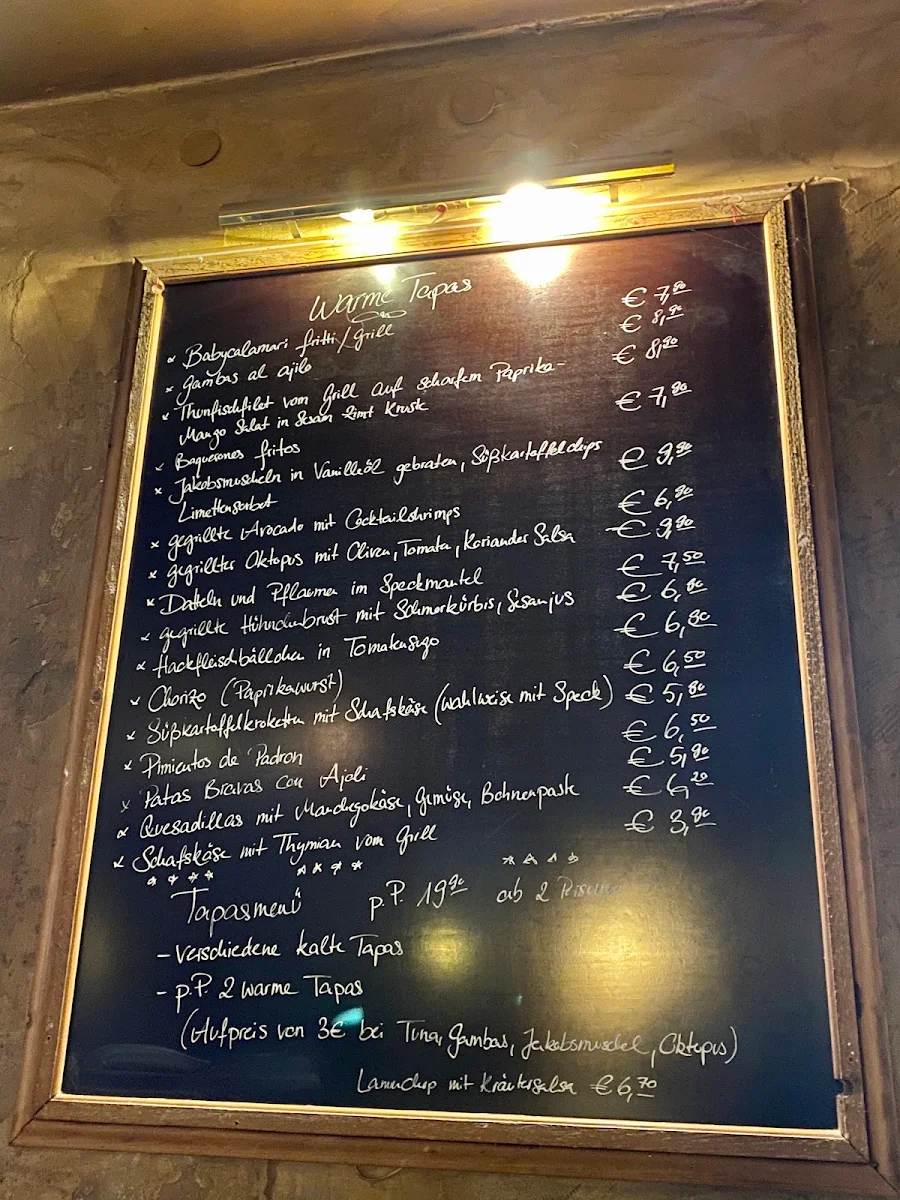 Warme Tapas
× Babycalamari fritti/Grill € 7,90
× Gambas al ajilo € 8,90
× Thunfischfilet vom Grill auf scharfem Paprika- € 8,90
Mango Salat in Sesam Zimt Kruste
× Boquerones fritos € 7,90
× Jakobsmuscheln in Vanilleöl gebraten, Süßkartoffelchips € 9,90
Limettensorbet
× gegrillte Avocado mit Cocktailshrimps € 6,90
× gegrillter Oktopus mit Oliven, Tomate, Koriander Salsa € 9,90
× Datteln und Pflaumen im Speckmantel € 7,50
× gegrillte Hühnchenbrust mit Schmorkürbis, Sesamjus € 6,80
× Hackfleischbällchen in Tomatensugo € 6,80
× Chorizo (Paprikawurst) € 6,50
× Süßkartoffelkroketten mit Schafskäse (wahlweise mit Speck) € 5,80
× Pimientos de Padron € 6,50
× Patas Bravas con Ajoli € 5,80
× Quesadillas mit Manchegokäse, Gemüse, Bohnenpaste € 6,20
× Schafskäse mit Thymian vom Grill € 3,80
Tapasmenü p.P. 19,90 ab 2
- verschiedene kalte Tapas
- p.P. 2 warme Tapas
(Aufpreis von 3€ bei Tuna, Gambas, Jakobsmuschel, Oktopus)
mit Kräutersalsa € 6,70